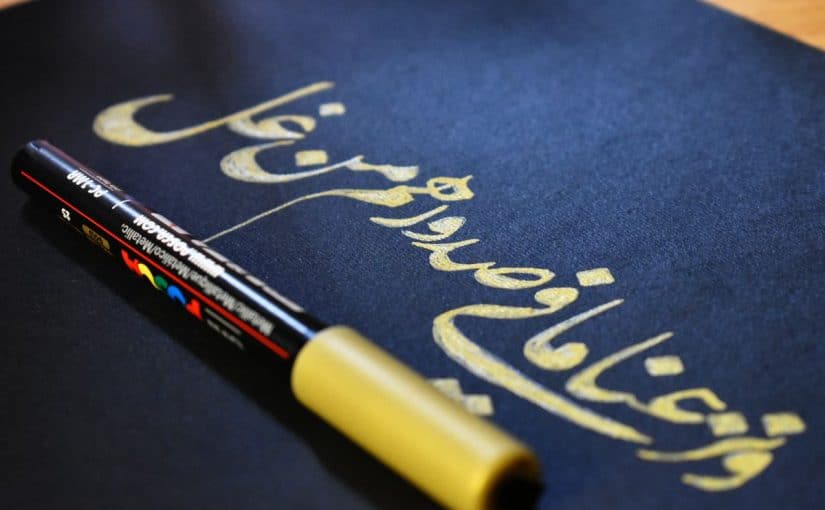 ونزعنا ما في صدورهم من غل
PC-1MR
WWW.POSCA.COM
POSCA